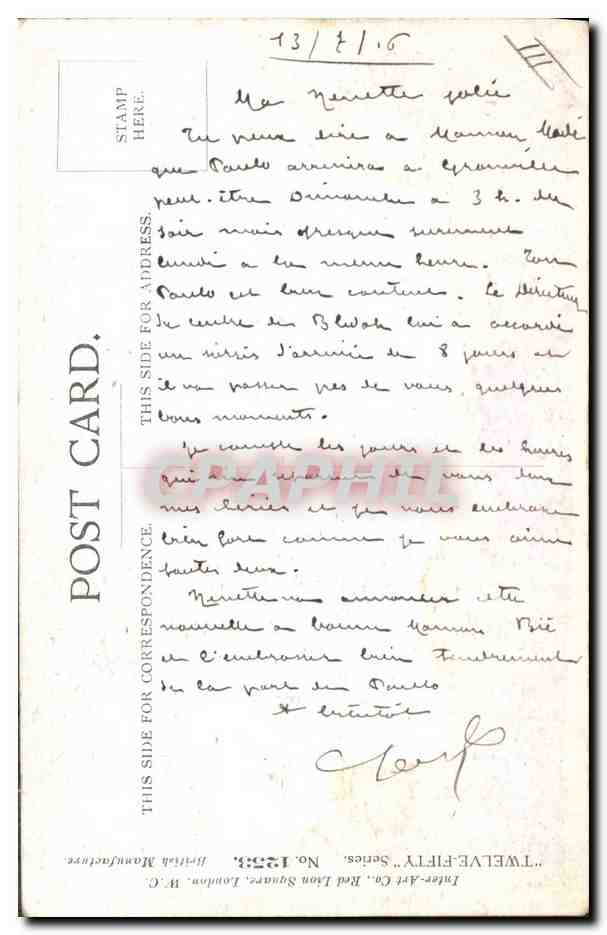 13/7/16
III
Ma Nenette jolie
Tu peux dire a Maman Made
que Paulo arrivera a Granville
peut-être Dimanche a 3 h. du
soir mais presque surement
Lundi a la meme heure. Ton
Paulo est bien content. Le Directeur
du centre de lui a accordé
un sursis d'arrivée de 8 jours et
il va passer pres de vous quelques
bons moments.
Je compte les jours et les heures
qui me separent de vous deux
mes cheries et je vous embrasse
bien fort comme je vous aime
toutes deux.
Nenette va annoncer cette
nouvelle a bonne Maman Bié
et l'embrasser bien tendrement
de la part de Paulo
A bientôt
STAMP
HERE.
POST CARD.
THIS SIDE FOR ADDRESS.
THIS SIDE FOR CORRESPONDENCE.
CPAPHIL
"TWELVE-FIFTY" Series. No. 1253. British Manufacture.
Inter-Art Co., Red Lion Square, London. W.C.